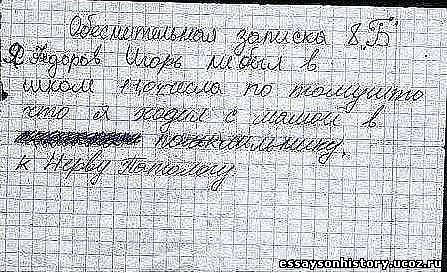 Обеснительная записка 8 "Б"
Я Федоров Игорь небыл в
школе 11 числа по томушто
что я ходил с мамой в
к Нерву Патологу
essaysonhistory.ucoz.ru